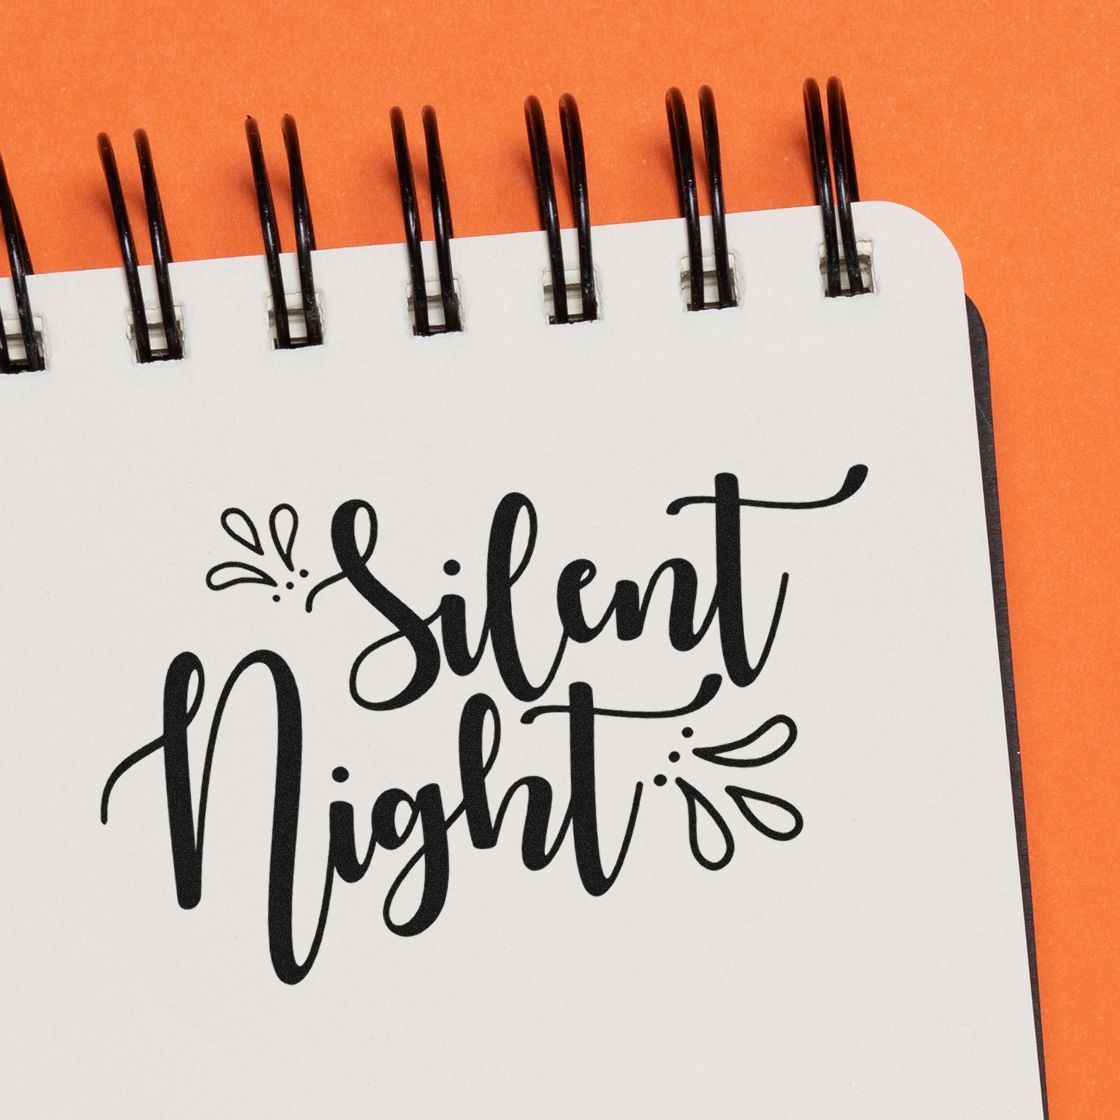 Silent
Night